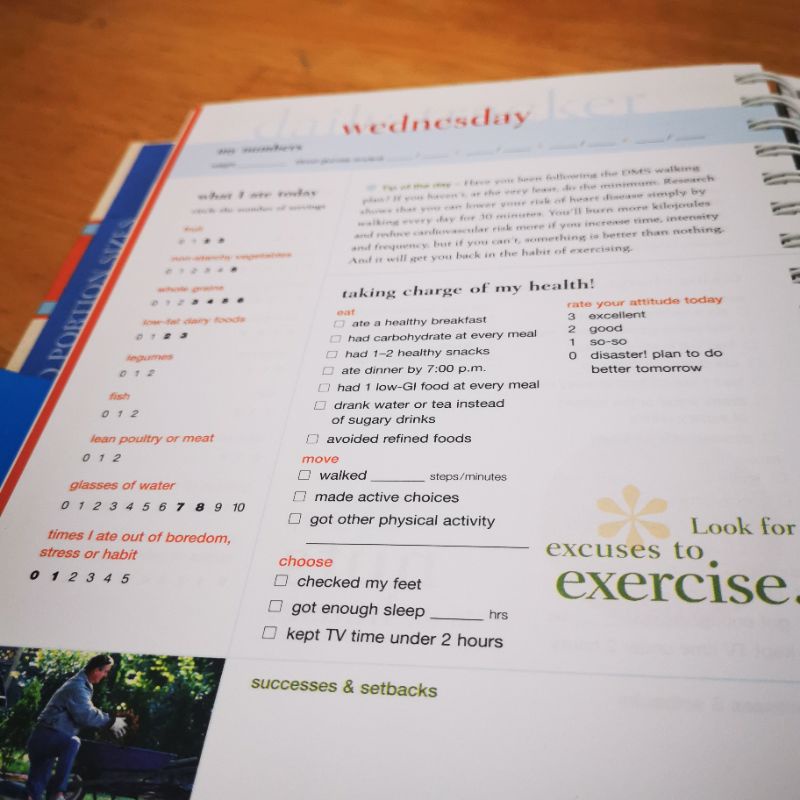 daily tracker
wednesday
my numbers
what I ate today
circle the number of servings
fruit
0 1 2 3
non-starchy vegetables
0 1 2 3 4 5
whole grains
0 1 2 3 4 5 6
low-fat dairy foods
0 1 2 3
legumes
0 1 2
fish
0 1 2
lean poultry or meat
0 1 2
glasses of water
0 1 2 3 4 5 6 7 8 9 10
times I ate out of boredom,
stress or habit
0 1 2 3 4 5
Tip of the day – Have you been following the DMS walking
plan? If you haven't, at the very least, do the minimum. Research
shows that you can lower your risk of heart disease simply by
walking every day for 30 minutes. You'll burn more kilojoules
and reduce cardiovascular risk more if you increase time, intensity
and frequency, but if you can't, something is better than nothing.
And it will get you back in the habit of exercising.
taking charge of my health!
eat
ate a healthy breakfast
had carbohydrate at every meal
had 1–2 healthy snacks
ate dinner by 7:00 p.m.
had 1 low-GI food at every meal
drank water or tea instead
of sugary drinks
avoided refined foods
move
walked ________ steps/minutes
made active choices
got other physical activity
choose
checked my feet
got enough sleep ________ hrs
kept TV time under 2 hours
rate your attitude today
3 excellent
2 good
1 so-so
0 disaster! plan to do
better tomorrow
Look for
excuses to
exercise.
successes & setbacks
PORTION SIZES